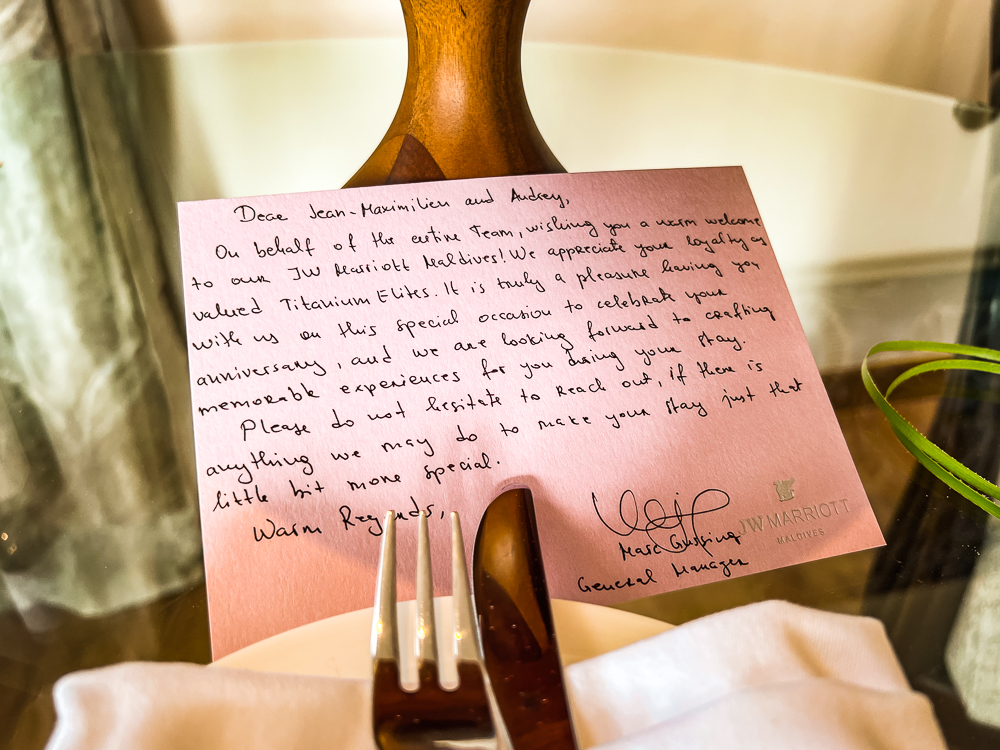 Dear Jean-Maximilien and Audrey,
On behalf of the entire Team, wishing you a warm welcome
to our JW Marriott Maldives! We appreciate your loyalty as
valued Titanium Elites. It is truly a pleasure having you
with us on this special occasion to celebrate your
anniversary, and we are looking forward to crafting
memorable experiences for you during your stay.
Please do not hesitate to reach out, if there is
anything we may do to make your stay just that
little bit more special.
Warm Regards,
Marc Gussing
General Manager
JW MARRIOTT
MALDIVES